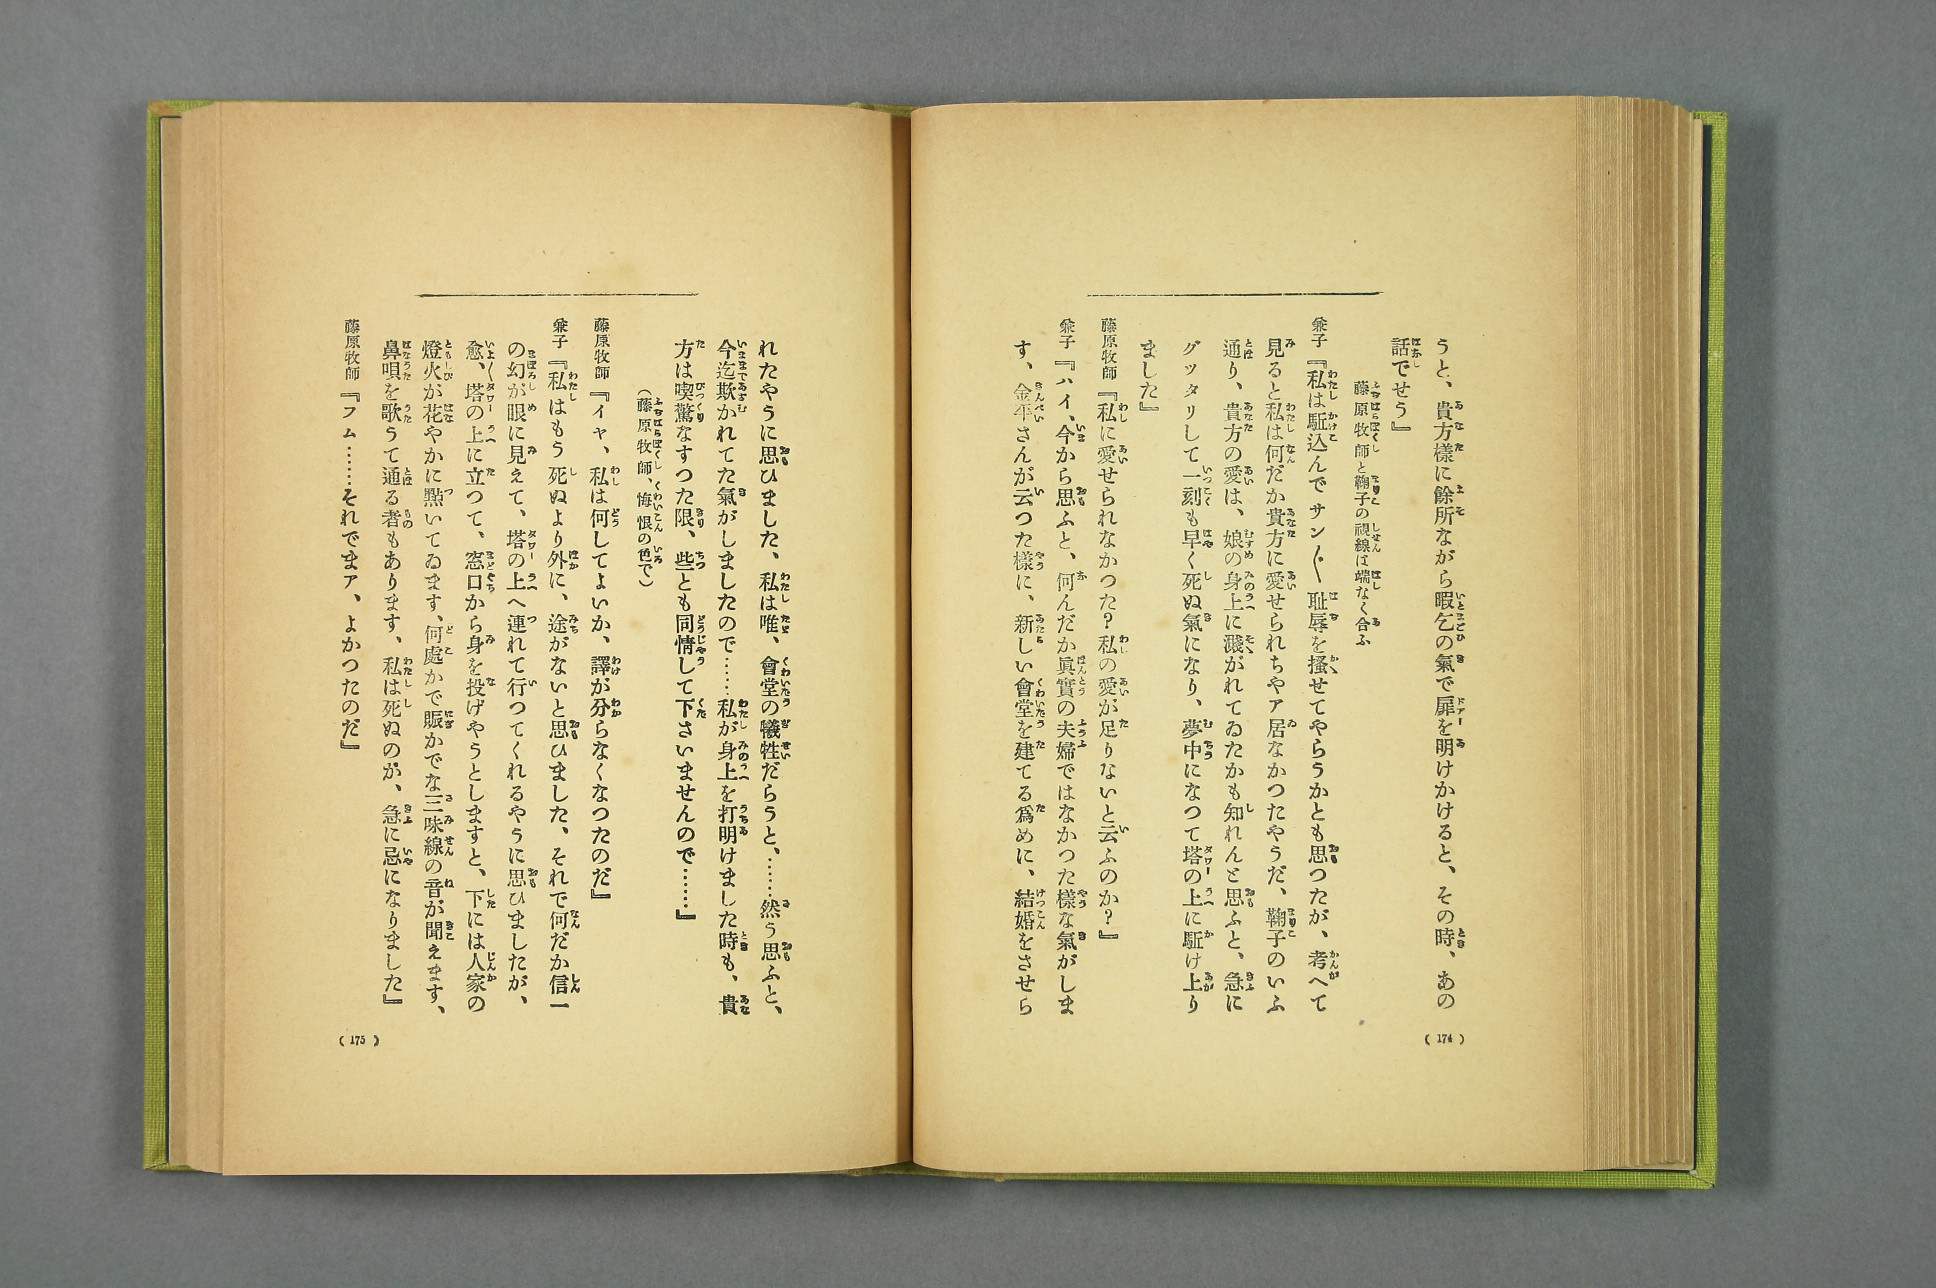 うと、貴方樣に餘所ながら暇乞の氣で扉を明けかけると、その時、あの
話でせう』
藤原牧師と鞠子の視線は端なく合ふ
兼子『私は駈込んでサン〴〵耻辱を搔せてやらうかとも思つたが、考へて
見ると私は何だか貴方に愛せられちやア居なかつたやうだ、鞠子のいふ
通り、貴方の愛は、娘の身上に濺がれてゐたかも知れんと思ふと、急に
グツタリして一刻も早く死ぬ氣になり、夢中になつて塔の上に駈け上り
ました』
藤原牧師『私に愛せられなかつた？私の愛が足りないと云ふのか？』
兼子『ハイ、今から思ふと、何んだか眞實の夫婦ではなかつた樣な氣がしま
す、金平さんが云つた樣に、新しい會堂を建てる爲めに、結婚をさせら
( 174 )
れたやうに思ひました、私は唯、會堂の犧牲だらうと、……然う思ふと、
今迄欺かれてた氣がしましたので……私が身上を打明けました時も、貴
方は喫驚なすつた限、些とも同情して下さいませんので……』
(藤原牧師、悔恨の色で)
藤原牧師『イヤ、私は何してよいか、譯が分らなくなつたのだ』
兼子『私はもう死ぬより外に、途がないと思ひました、それで何だか信一
の幻が眼に見えて、塔の上へ連れて行つてくれるやうに思ひましたが、
愈、塔の上に立つて、窓口から身を投げやうとしますと、下には人家の
燈火が花やかに點いてゐます、何處かで賑かでな三味線の音が聞えます、
鼻唄を歌うて通る者もあります、私は死ぬのが、急に忌になりました』
藤原牧師『フム……それでまア、よかつたのだ』
( 175 )